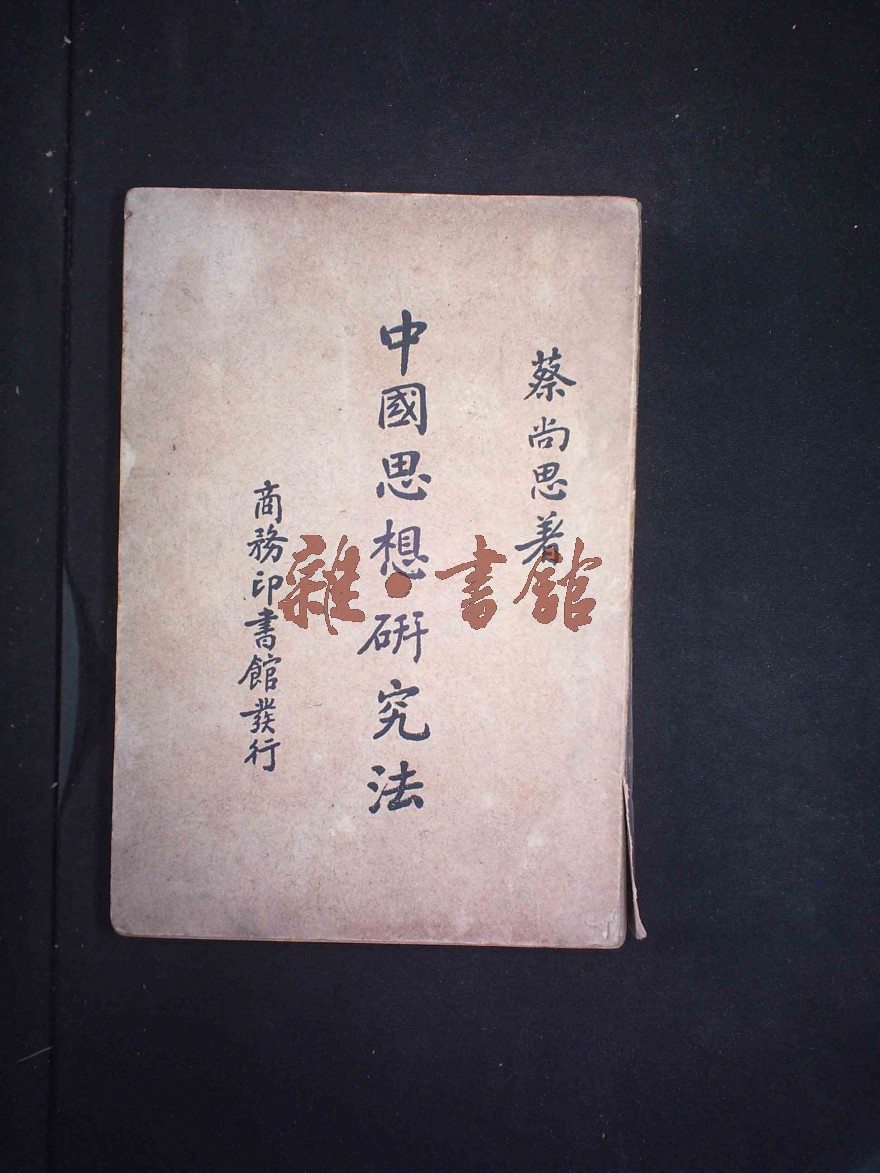 蔡尚思著
中國思想研究法
商務印書館發行
雜·書館